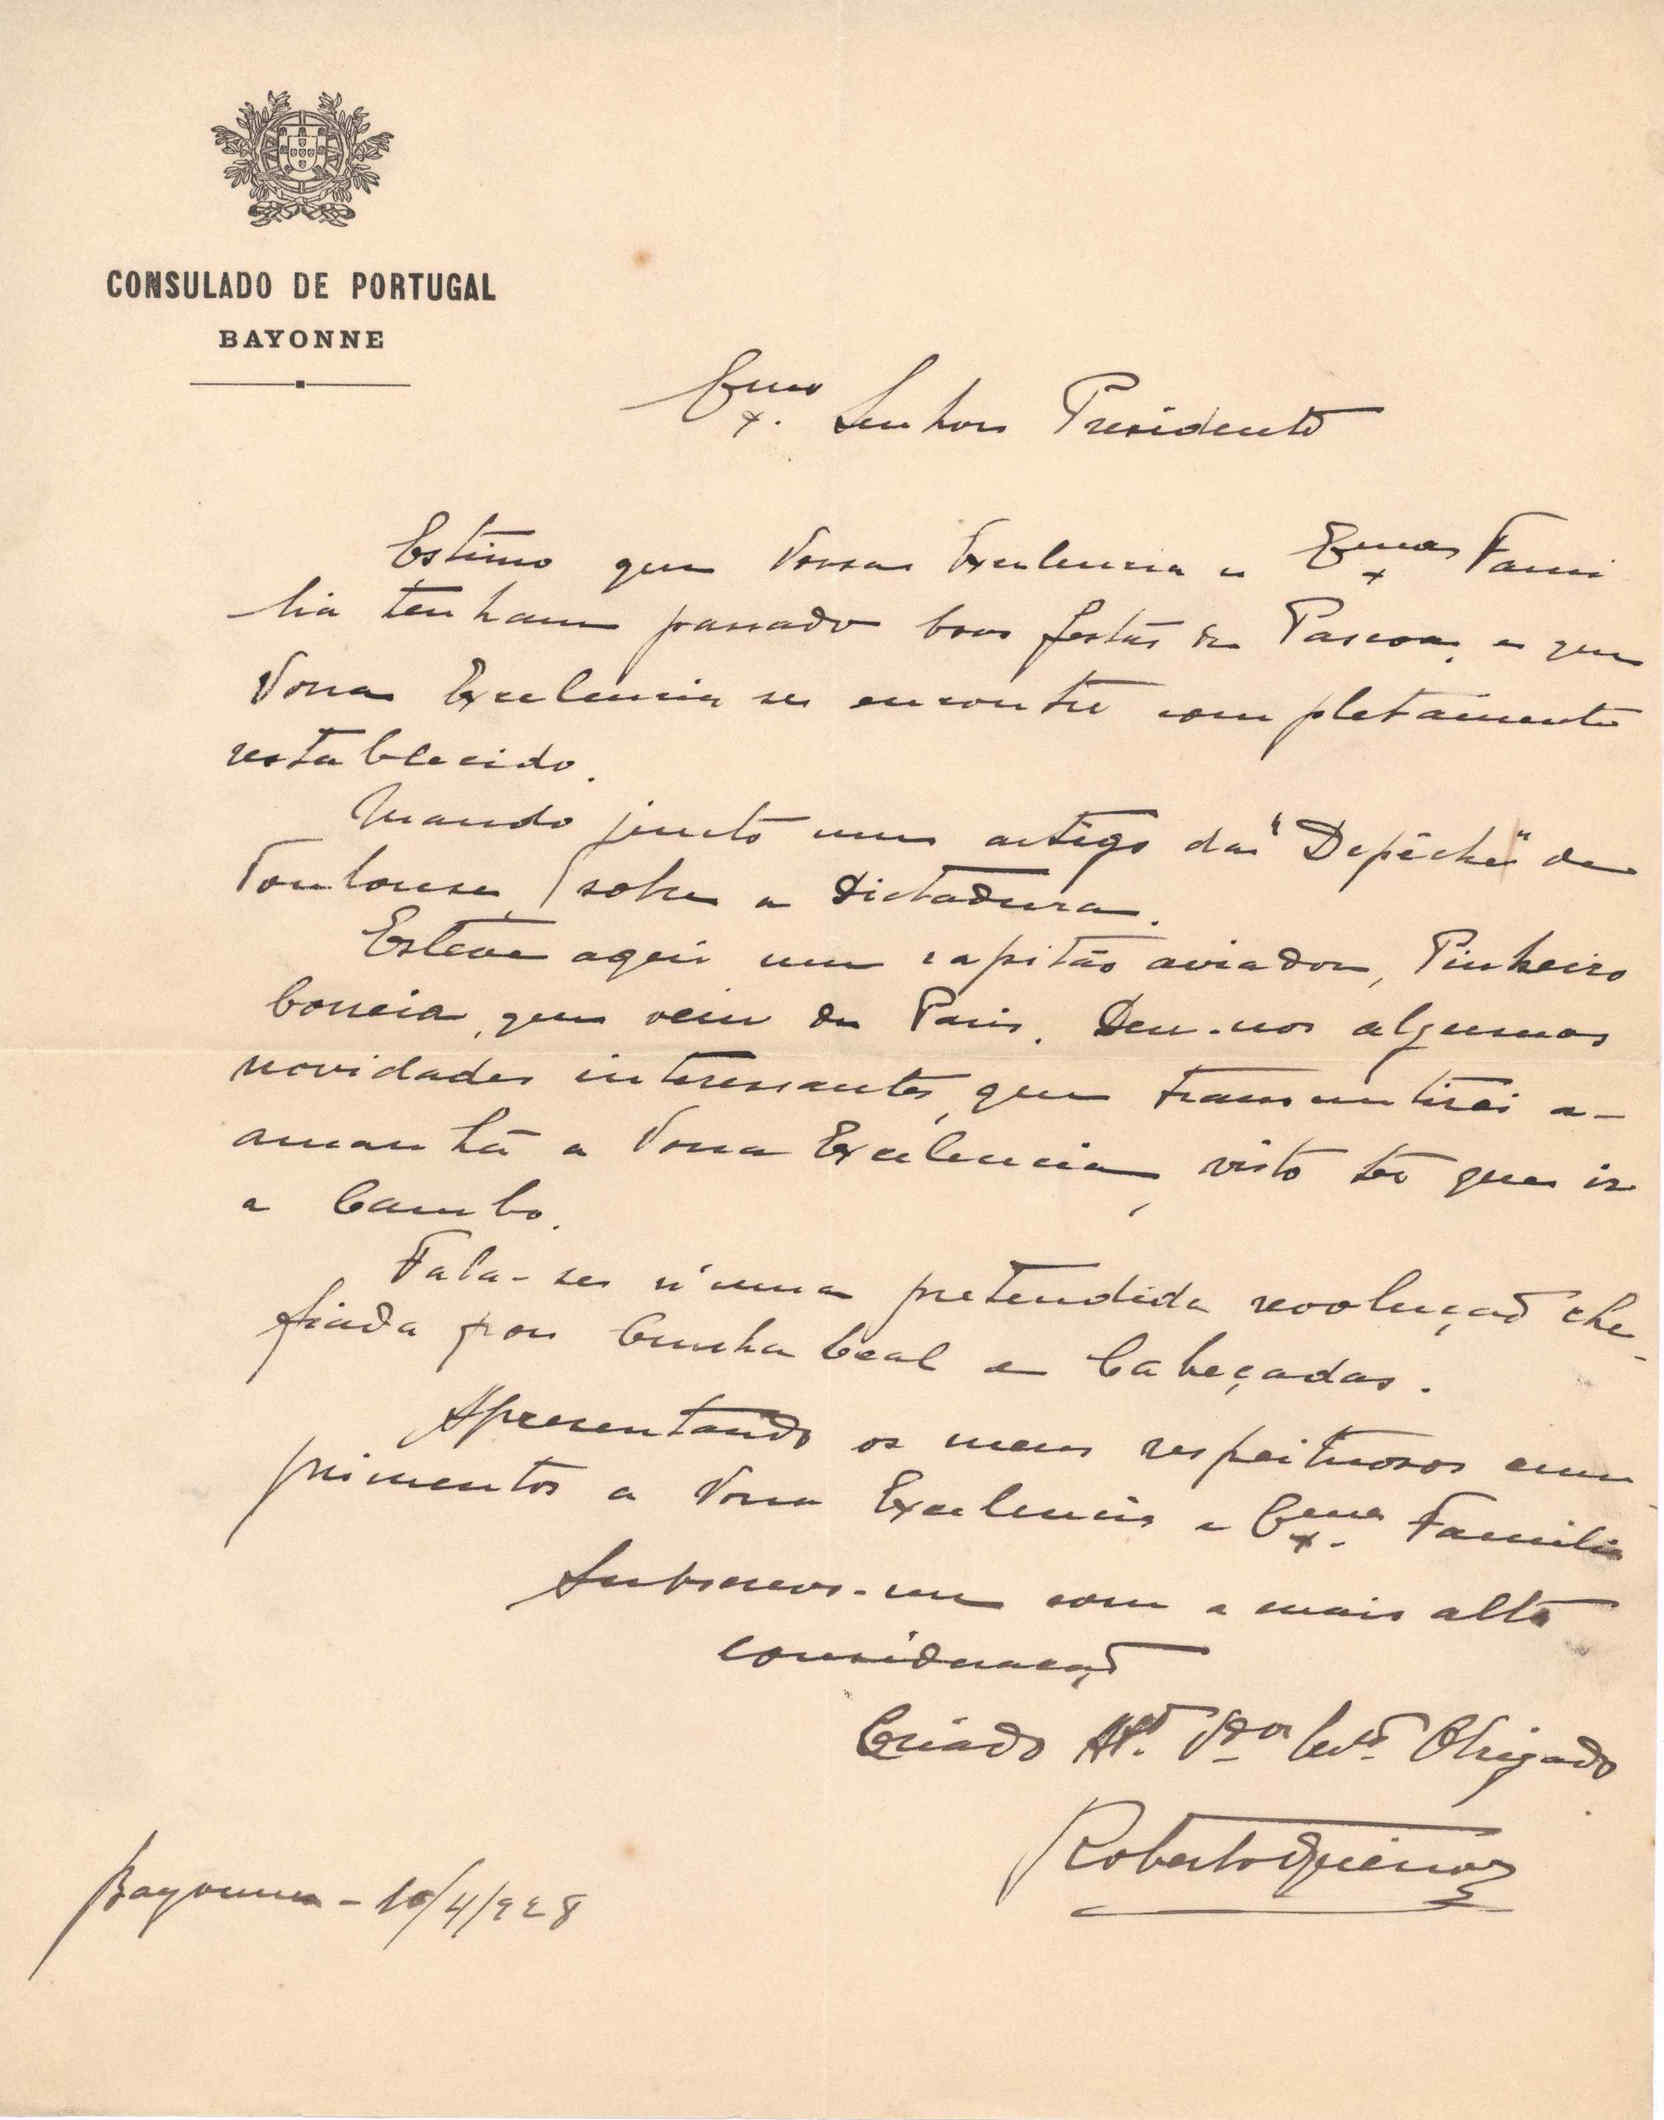 CONSULADO DE PORTUGAL
BAYONNE
Exmo. Senhor Presidente
Estimo que Vossa Excelencia e Exma Fami
lia tenham passado boas festas da Pascoa, e que
Vossa Excelencia se encontre completamente
restablecido.
Mando junto um artigo da "Depêche" de
Toulouse, sobre a Dictadura.
Esteve aqui um capitão aviador, Pinheiro
Correia, que veiu de Paris. Deu-nos algumas
novidades interessantes, que transmitirei a-
amanhã a Vossa Excelencia, visto ter que ir
a Cambo.
Fala-se n'uma pretendida revolução che-
fiada por Cunha Leal e Cabeçadas.
Apresentando os meus respeituosos cum-
primentos a Vossa Excelencia e Exma. Familia
Subscrevo-me com a mais alta
consideração
Criado Atº. Vdor Obrigado
Roberto
Bayonne - 10/4/928